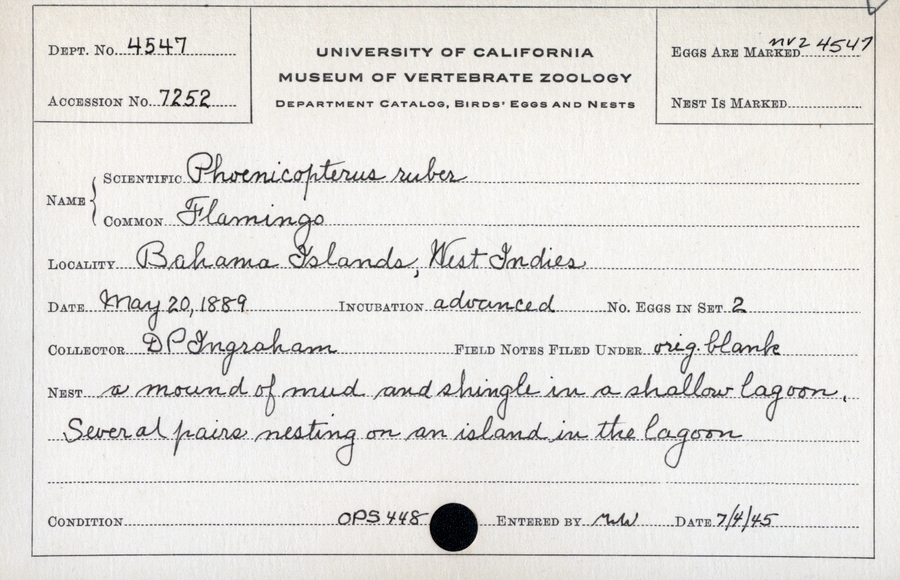 DEPT. No. 4547
ACCESSION No. 7252
UNIVERSITY OF CALIFORNIA
MUSEUM OF VERTEBRATE ZOOLOGY
DEPARTMENT CATALOG, BIRDS' EGGS AND NESTS
EGGS ARE MARKED mvz 4547
NEST IS MARKED
NAME { SCIENTIFIC Phoenicopterus ruber
COMMON Flamingo
LOCALITY Bahama Islands, West Indies
DATE May 20, 1889 INCUBATION advanced No. EGGS IN SET 2
COLLECTOR D P Ingraham FIELD NOTES FILED UNDER orig. blank
NEST a mound of mud and shingle in a shallow lagoon.
Several pairs nesting on an island in the lagoon
CONDITION OPS 448 ENTERED BY DATE 7/4/45